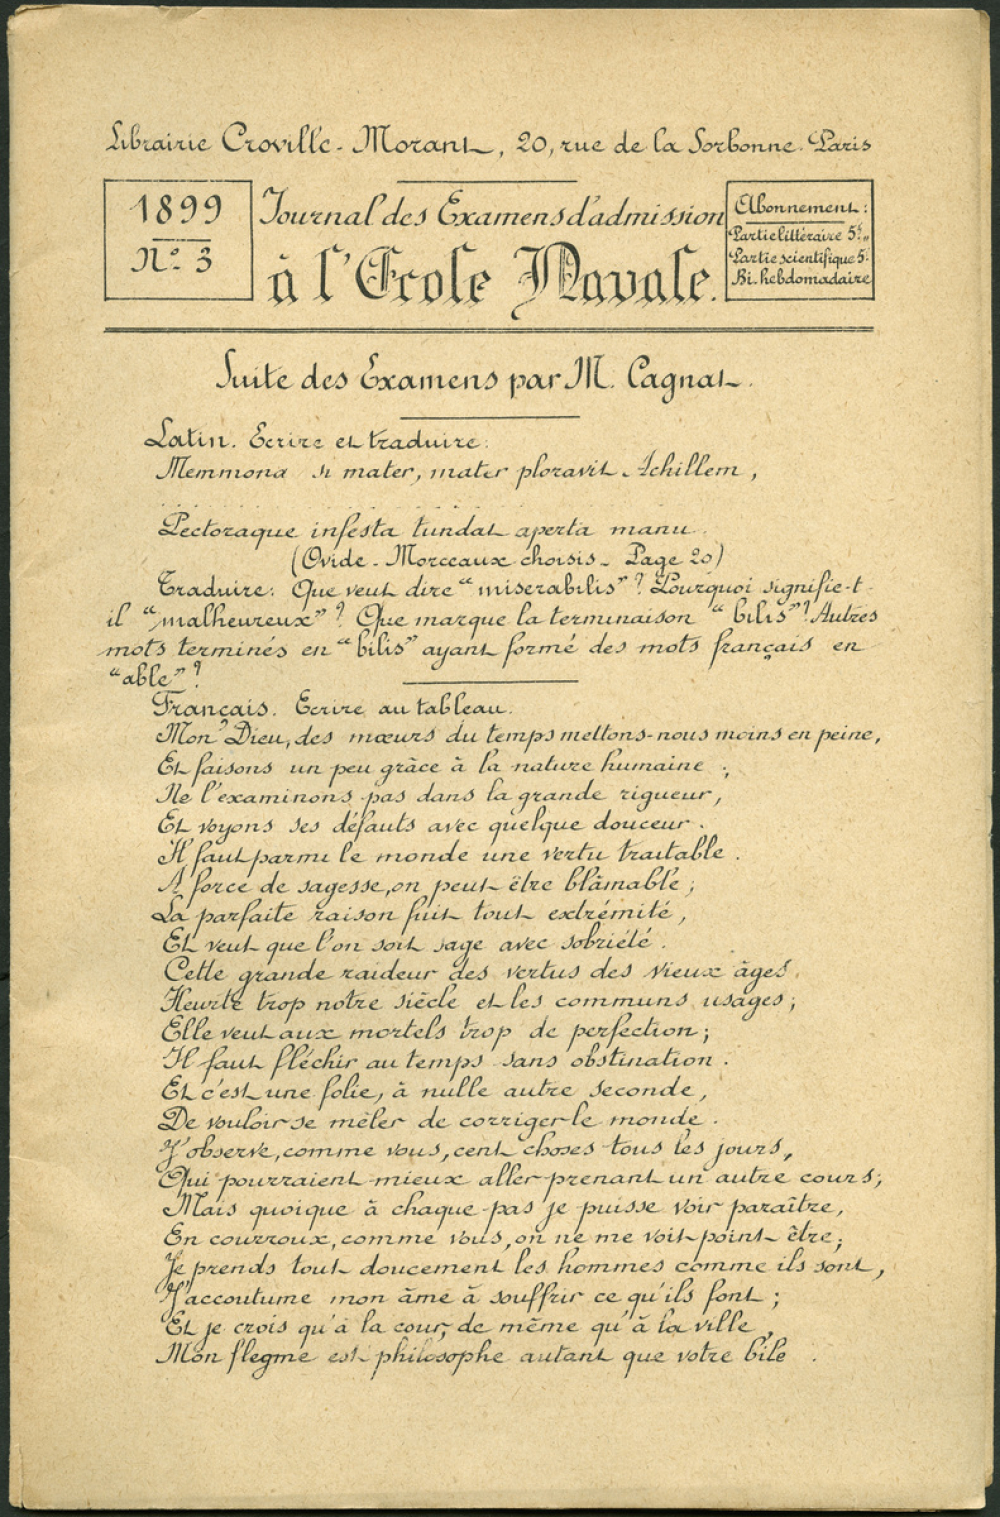 Librairie Croville-Morant, 20, rue de la Sorbonne. Paris
1899
N° 3
Journal des Examens d'admission
à l'Ecole Navale.
Abonnement :
Partie littéraire 5f "
Partie scientifique 5f
Bi-hebdomadaire
Suite des Examens par M. Cagnat.
Latin. Ecrire et traduire :
Memmona si mater, mater ploravit Achillem,
Pectoraque infesta tundat aperta manu.
(Ovide - Morceaux choisis - Page 20)
Traduire : Que veut dire "miserabilis" ? Pourquoi signifie-t-
il "malheureux" ? Que marque la terminaison "bilis" ? Autres
mots terminés en "bilis" ayant formé des mots français en
"able" ?
Français. Ecrire au tableau.
Mon Dieu, des mœurs du temps mettons-nous moins en peine,
Et faisons un peu grâce à la nature humaine ;
Ne l'examinons pas dans la grande rigueur,
Et voyons ses défauts avec quelque douceur.
Il faut parmi le monde une vertu traitable.
A force de sagesse, on peut être blâmable ;
La parfaite raison fuit tout extrémité,
Et veut que l'on soit sage avec sobriété.
Cette grande raideur des vertus des vieux âges,
Heurte trop notre siècle et les communs usages ;
Elle veut aux mortels trop de perfection ;
Il faut fléchir au temps sans obstination.
Et c'est une folie, à nulle autre seconde,
De vouloir se mêler de corriger le monde.
J'observe, comme vous, cent choses tous les jours,
Qui pourraient mieux aller prenant un autre cours ;
Mais quoique à chaque pas je puisse voir paraître,
En courroux, comme vous, on ne me voit point être ;
Je prends tout doucement les hommes comme ils sont,
J'accoutume mon âme à souffrir ce qu'ils font ;
Et je crois qu'à la cour, de même qu'à la ville,
Mon flegme est philosophe autant que votre bile.